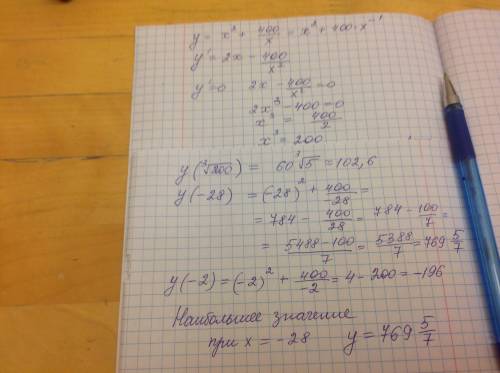 y = x² + 400/x = x² + 400·x⁻¹
y' = 2x − 400/x²
y'=0 2x − 400/x² = 0
2x³ − 400 = 0
x³ = 400/2
x³ = 200
y(∛200) = 60∛5 = 102,6
y(−28) = (−28)² + 400/−28 =
= 784 − 400/28 = 784 − 100/7 =
= 5488−100/7 = 5388/7 = 769 5/7
y(−2) = (−2)² + 400/−2 = 4 − 200 = −196
Наибольшее значение
при x = −28 y = 769 5/7